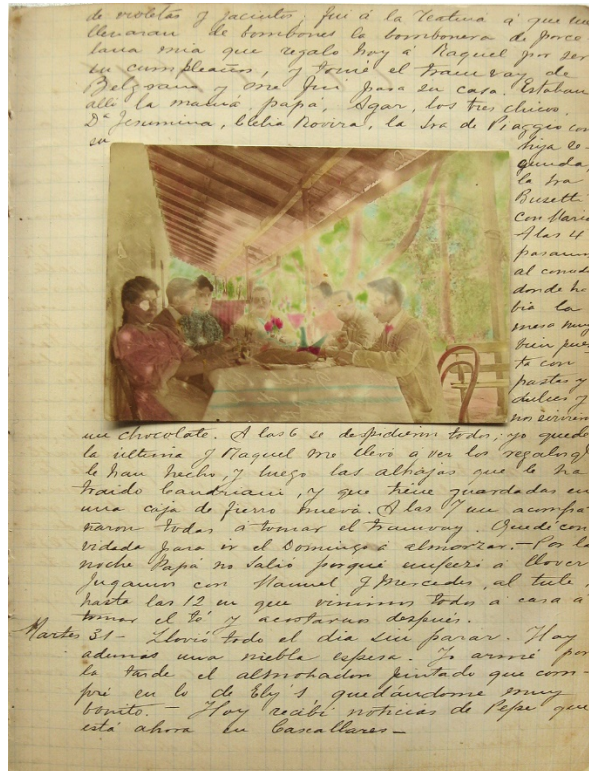 de violetas y jacintos; fuí á la Teatina á que me
llenaran de bombones la bombonera de porce
lana mia que regalo hoy á Raquel por ser
su cumpleaños, y tomé el tramway de
Belgrano y me fuí para su casa. Estaban
allí la mamá, papá, Agar, los tres chicos,
Dª Jesumina, Clelia Rovira, la Sra de Piaggio con
su hija se-
gunda,
la Sra
Busetti
con María
A las 4
pasamos
al comedor
donde ha
bía la
mesa muy
bien pues
ta con
pastas y
dulces y
nos sirvieron
un chocolate. A las 6 se despidieron todos; yo quedé
la última y Raquel me llevó a ver los regalos q'
le han hecho, y luego las alhajas que le ha
traido y que tiene guardadas en
una caja de fierro nueva. A las 7 me acompa
ñaron todas á tomar el tramway. Quedé con
vidada para ir el Domingo á almorzar.- Por la
noche Papá no salió porque empezó á llover
Jugamos con Manuel y Mercedes, al tute
hasta las 12 en que vinimos todos a casa á
tomar el té y acostarnos después.
Martes 31 - Llovió todo el dia sin parar. Hay
ademas una niebla espesa. Yo armé por
la tarde el almohadon pintado que com-
pré en lo de Eby's quedándome muy
bonito. - Hoy recibí noticias de Pepe que
está ahora en Cascallares -